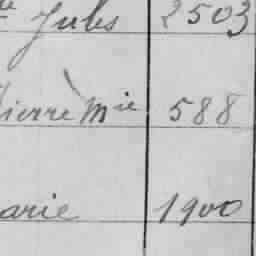 Jules 2503
Pierre Mie 588
arie 1900